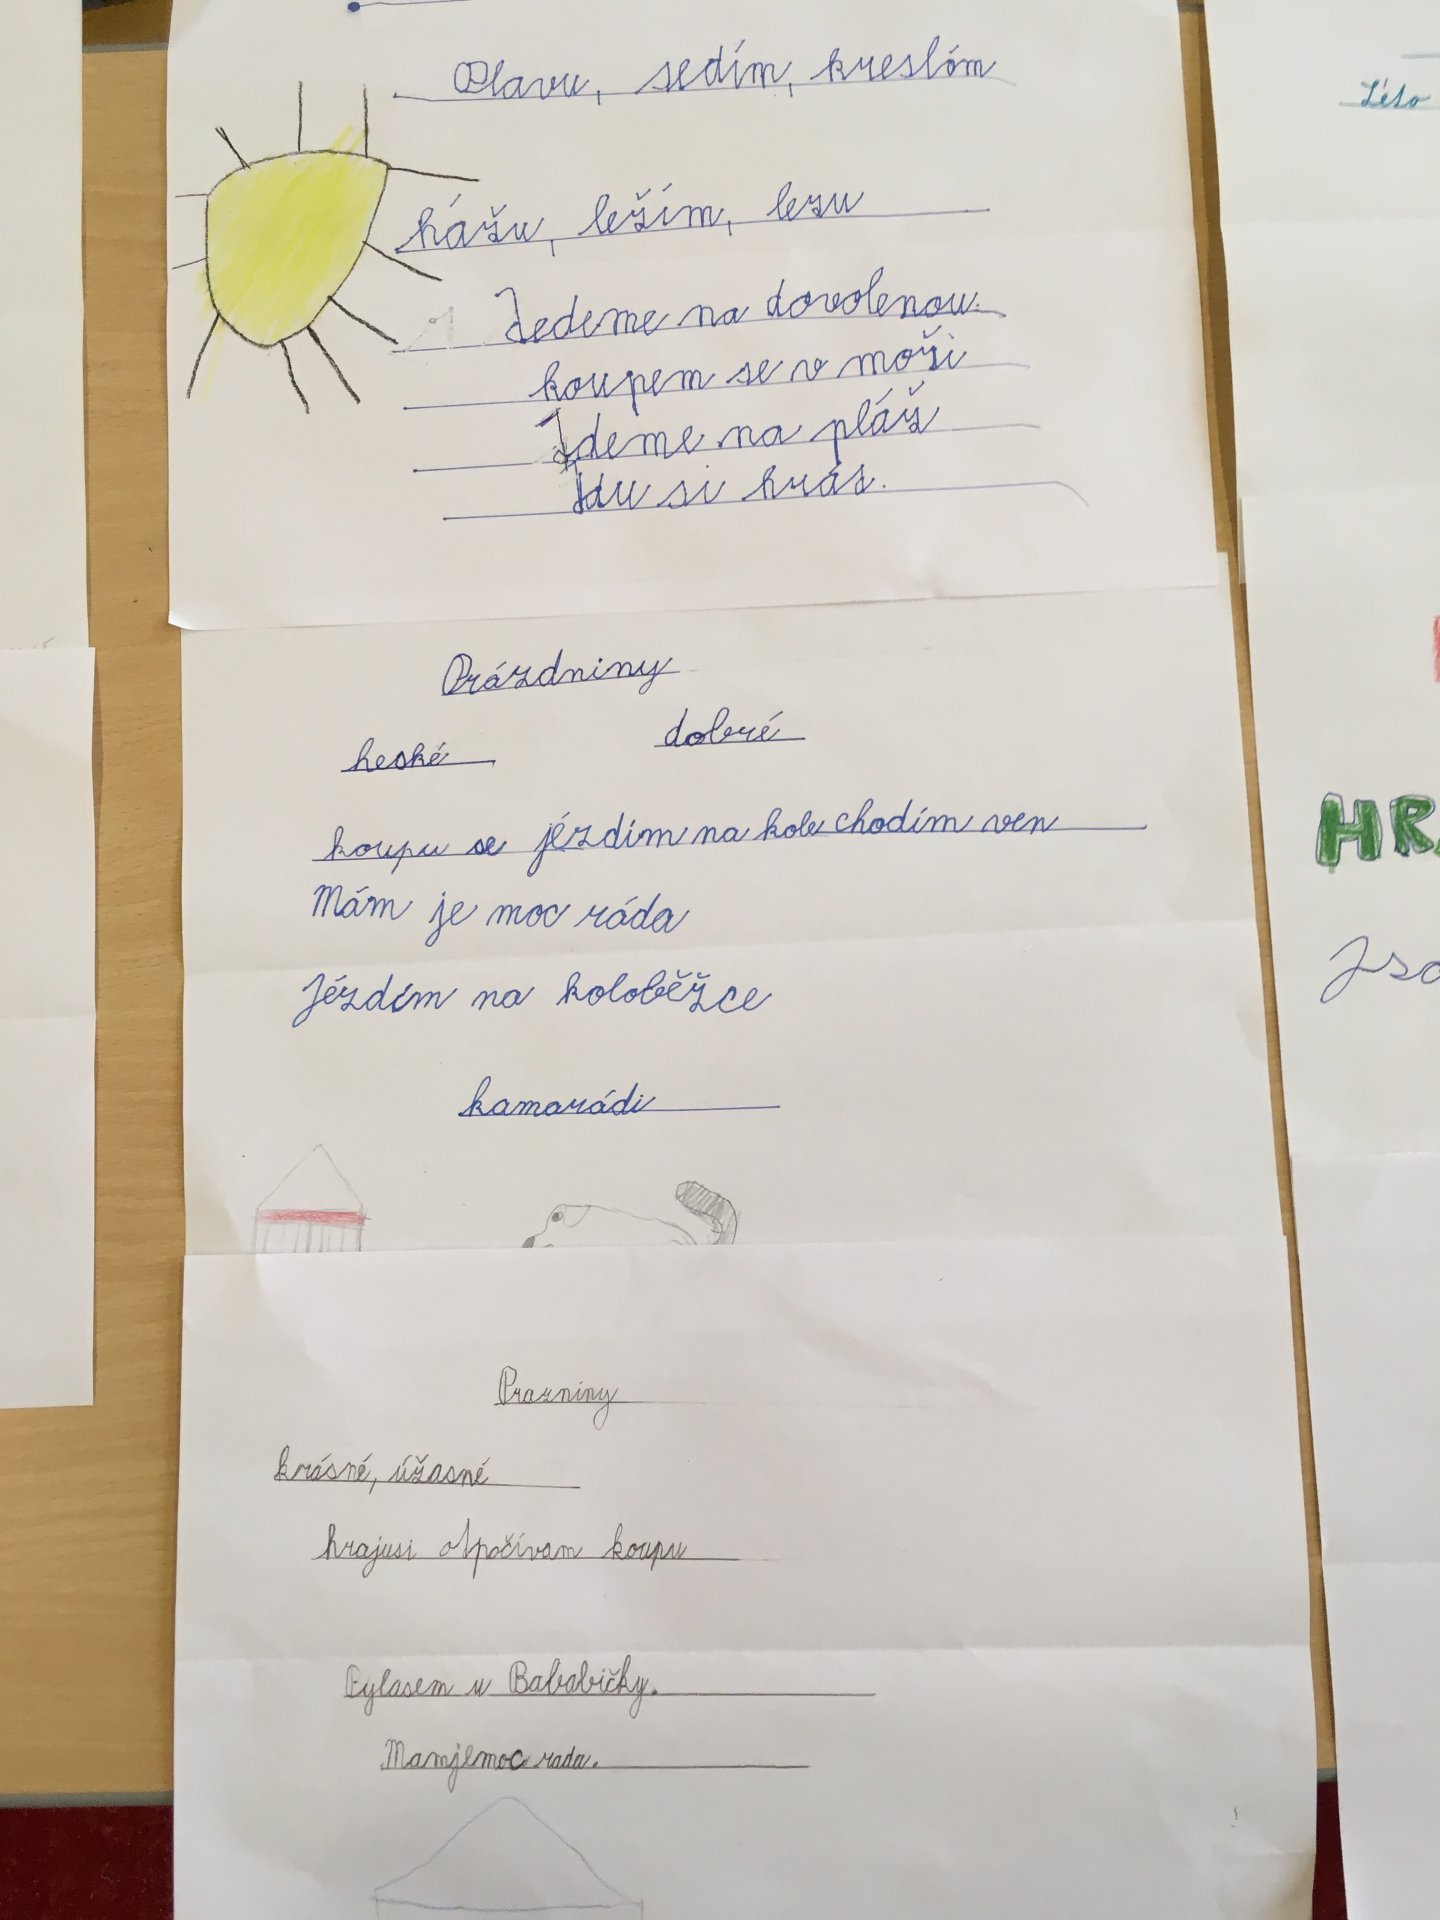 Plavu, sedím, kreslóm
hážu, ležím, lezu
Jedeme na dovolenou.
koupem se v moři
Jdeme na pláž
Jdu si hrát.
Prázdniny
heské dobré
koupu se jézdím na kole chodím ven
Mám je moc ráda
Jézdím na koloběžce
kamarádi
Prazniny
krásné, úžasné
hrajusi otpočívam koupu
Bylasem u Bababičky.
Mamjemoc rada.
Léto
HR
Jso